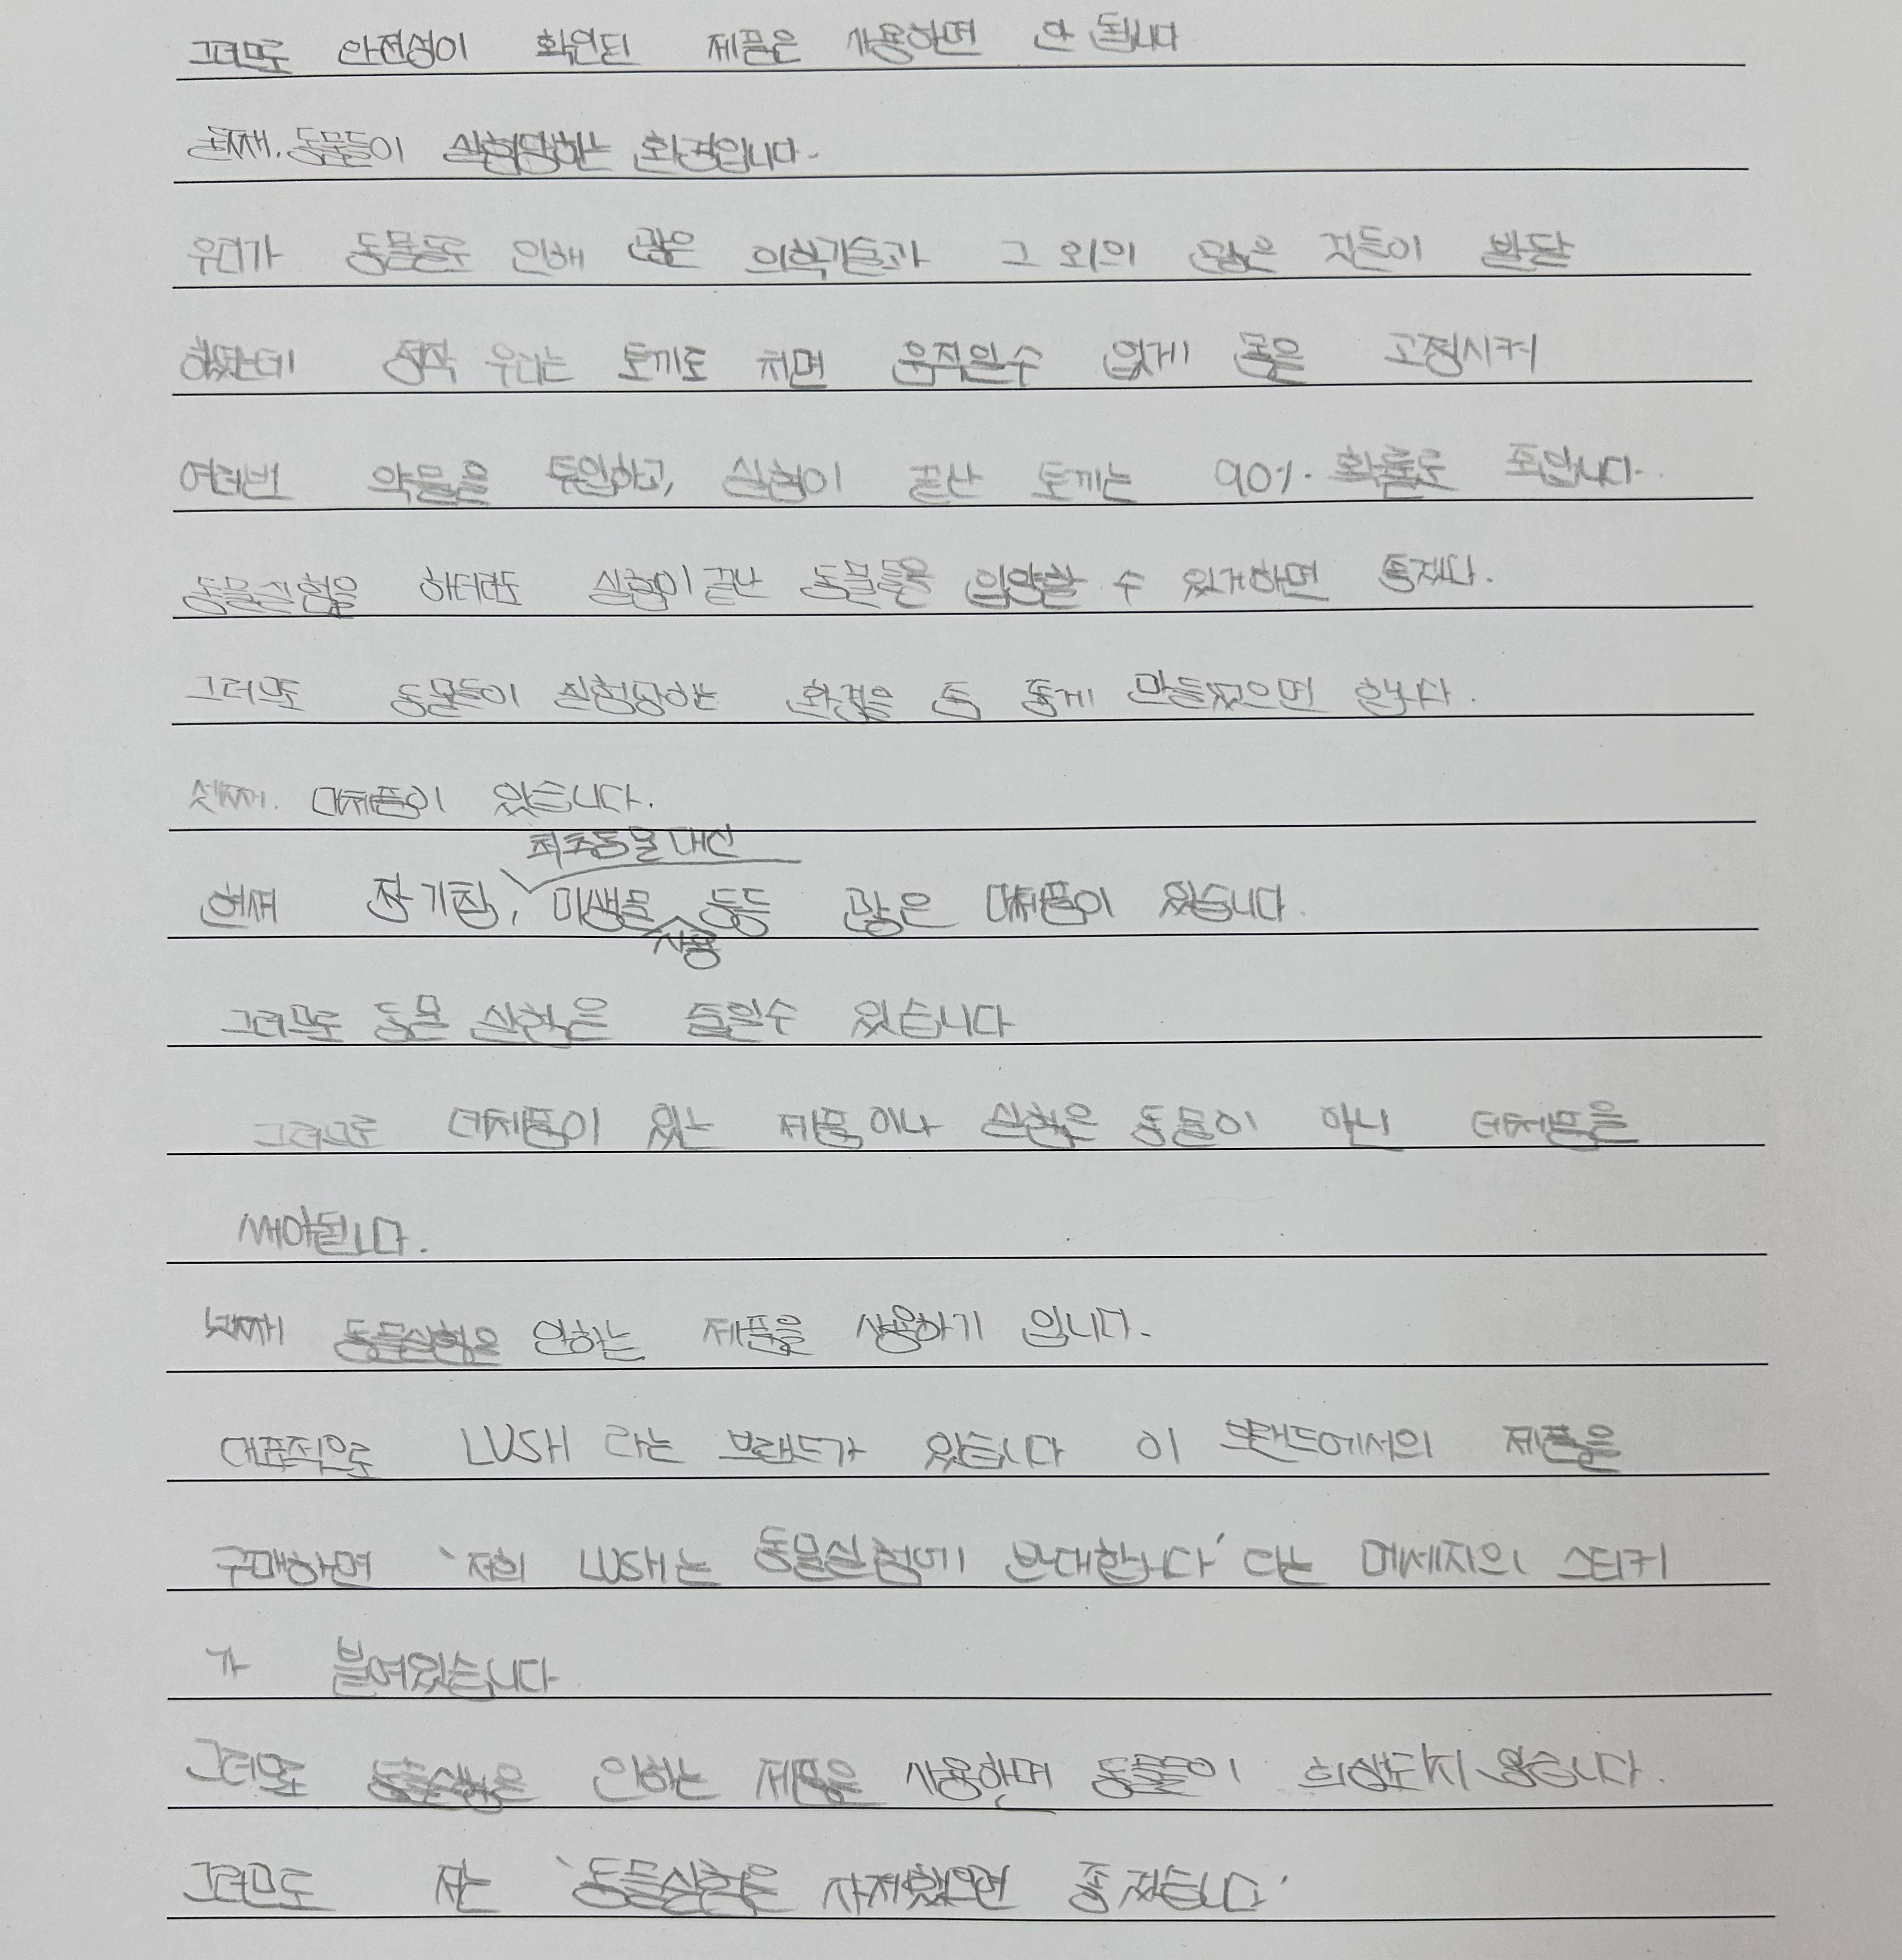 그러므로 안전성이 확인된 제품은 사용하면 안 됩니다
둘째. 동물들이 실험당하는 환경입니다.
우리가 동물들로 인해 많은 의학기술과 그 외의 많은 것들이 발달
하였는데 정작 우리는 토끼로 치면 움직일수 없게 몸을 고정시켜
여러번 약물을 투입하고, 실험이 끝난 토끼는 90%. 확률로 죽입니다.
동물실험을 하더라도 실험이 끝난 동물들을 입양할 수 있게하면 좋겠다.
그러므로 동물들이 실험당하는 환경을 좀 좋게 만들었으면 합니다.
셋째. 대체품이 있습니다.
척추동물 대신
현재 장기칩, 미생물 등등 많은 대체품이 있습니다.
사용
그러므로 동물 실험은 줄일수 있습니다
그러므로 대체품이 있는 제품이나 실험은 동물이 아닌 대체품을
써야됩니다.
넷째 동물실험을 안하는 제품을 사용하기 입니다.
대표적으로 LUSH 라는 브랜드가 있습니다 이 브랜드에서의 제품을
구매하면 '저희 LUSH는 동물실험에 반대합니다' 라는 메세지의 스티커
가 붙어있습니다
그러므로 동물실험을 안하는 제품을 사용하면 동물들이 희생되지 않습니다.
그러므로 저는 '동물실험은 자제했으면 좋겠습니다'